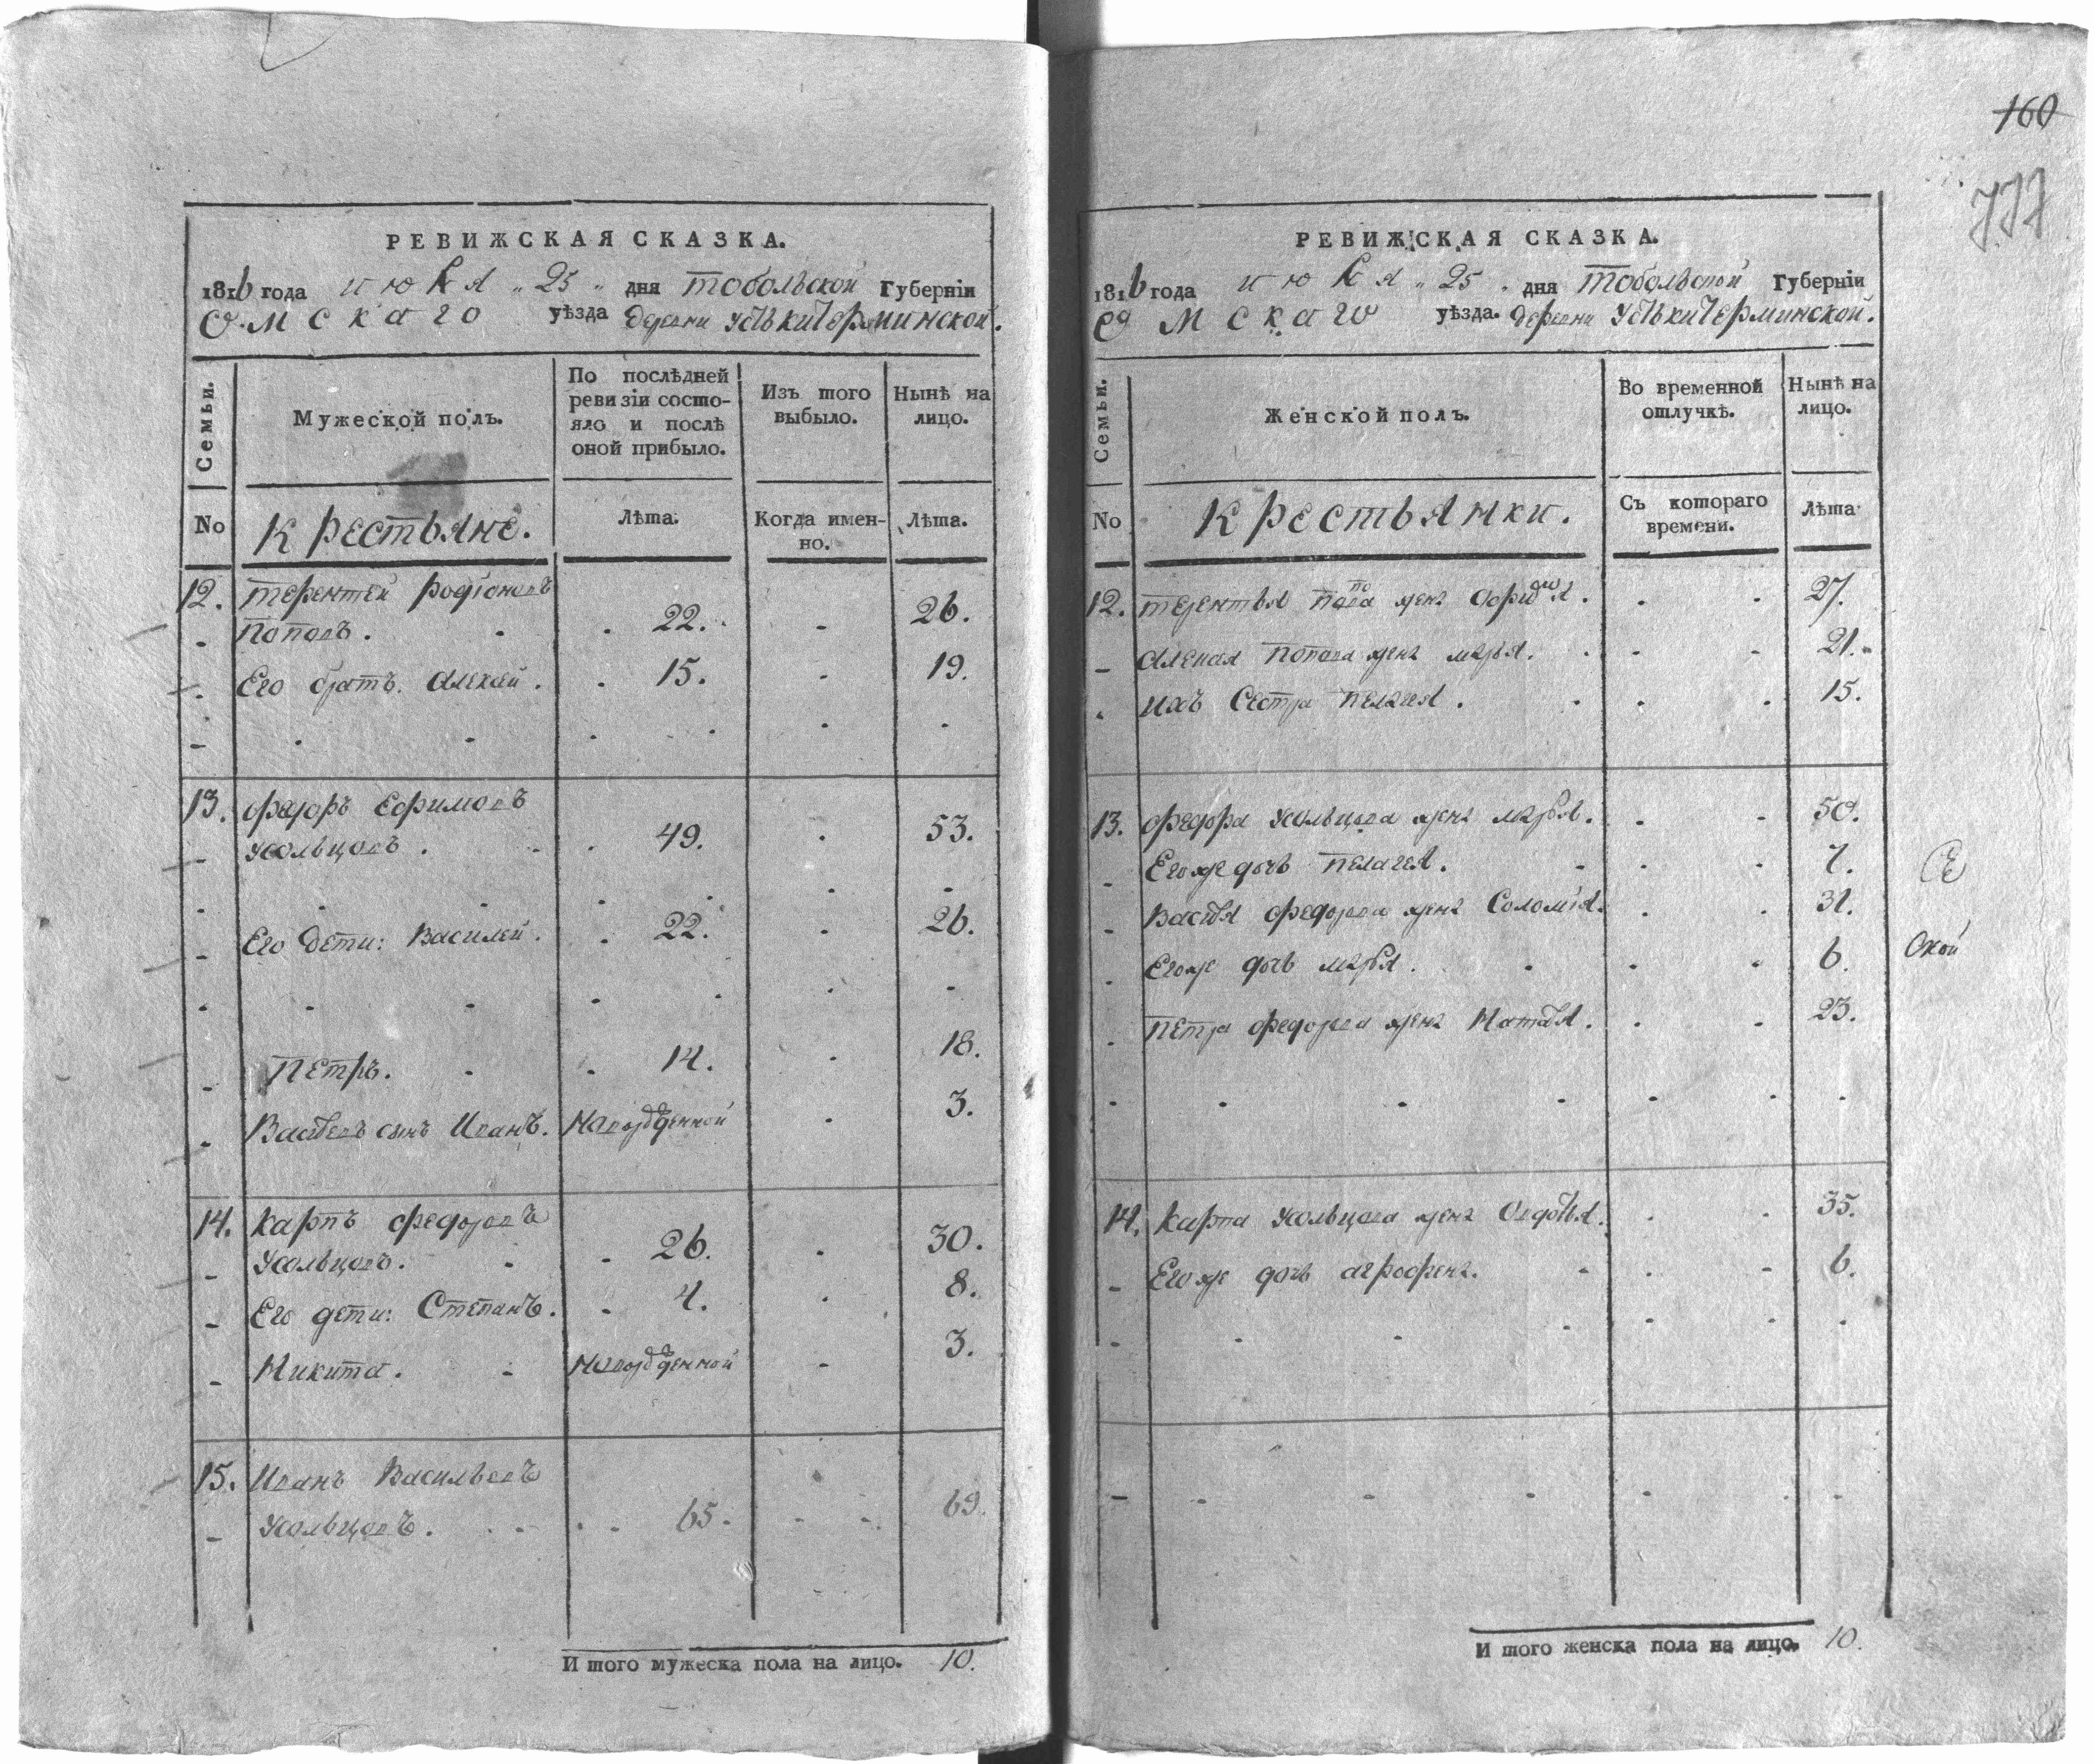 РЕВИЖСКАЯ СКАЗКА.
1816 года июля 25 дня Тобольской Губерніи
Омскаго уѣзда деревни Устькичерминской.
Семьи.
Мужеской полъ.
По послѣдней ревизіи состояло и послѣ оной прибыло.
Изъ того выбыло.
Нынѣ на лицо.
No
Крестьяне.
Лѣта.
Когда именно.
Лѣта.
12. Терентей Родіоновъ
Поповъ. 22. 26.
Его братъ Алексей. 15. 19.
13. Федоръ Ефимовъ
Усольцовъ. 49. 53.
Его дети: Василей. 22. 26.
Петръ. 14. 18.
Васильевъ сынъ Иванъ. Новорожденной 3.
14. Карпъ Федоровъ
Усольцовъ. 26. 30.
Его дети: Степанъ. 4. 8.
Никита. Новорожденной 3.
15. Иванъ Васильевъ
Усольцовъ. 65. 69.
Итого мужеска пола на лицо. 10.
160
РЕВИЖСКАЯ СКАЗКА.
1816 года июля 25 дня Тобольской Губерніи
Омскаго уѣзда. деревни Устькичерминской.
Семьи.
Женской полъ.
Во временной отлучкѣ.
Нынѣ на лицо.
No
Крестьянки.
Съ котораго времени.
Лѣта
12. Терентья Попова жена 27.
Алексея Попова жена Марья. 21.
Ихъ сестра Пелагея. 15.
13. Федора Усольцова жена Марья. 50.
Его же дочь Пелагея. 7.
Василья Федорова жена Соломия. 31.
Его же дочь Марья. 6.
Петра Федорова жена Наталья. 23.
14. Карпа Усольцова жена Овдотья. 35.
Его же дочь Агрофена. 6.
Итого женска пола на лицо. 10.